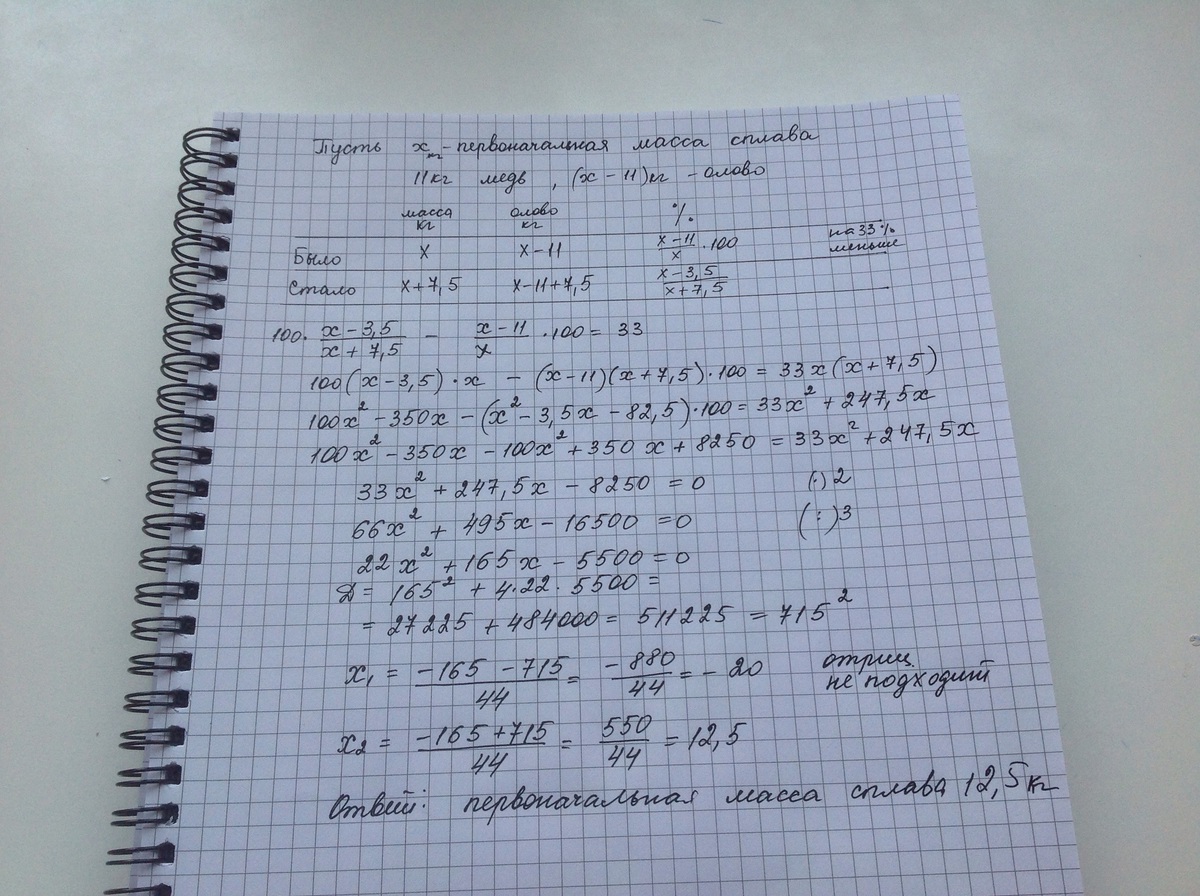 Пусть x кг - первоначальная масса сплава
11 кг медь, (x - 11) кг - олово
масса кг олово кг %
Было x x-11 x-11/x · 100 на 33% меньше
Стало x+7,5 x-11+7,5 x-3,5/x+7,5
100 · x-3,5/x+7,5 - x-11/x · 100 = 33
100(x-3,5)·x - (x-11)(x+7,5)·100 = 33x(x+7,5)
100x² - 350x - (x² - 3,5x - 82,5)·100 = 33x² + 247,5x
100x² - 350x - 100x² + 350x + 8250 = 33x² + 247,5x
33x² + 247,5x - 8250 = 0 (·) 2
66x² + 495x - 16500 = 0 (:) 3
22x² + 165x - 5500 = 0
D = 165² + 4·22·5500 =
= 27225 + 484000 = 511225 = 715²
x₁ = -165 - 715/44 = -880/44 = -20 отриц. не подходит
x₂ = -165 + 715/44 = 550/44 = 12,5
Ответ: первоначальная масса сплава 12,5 кг